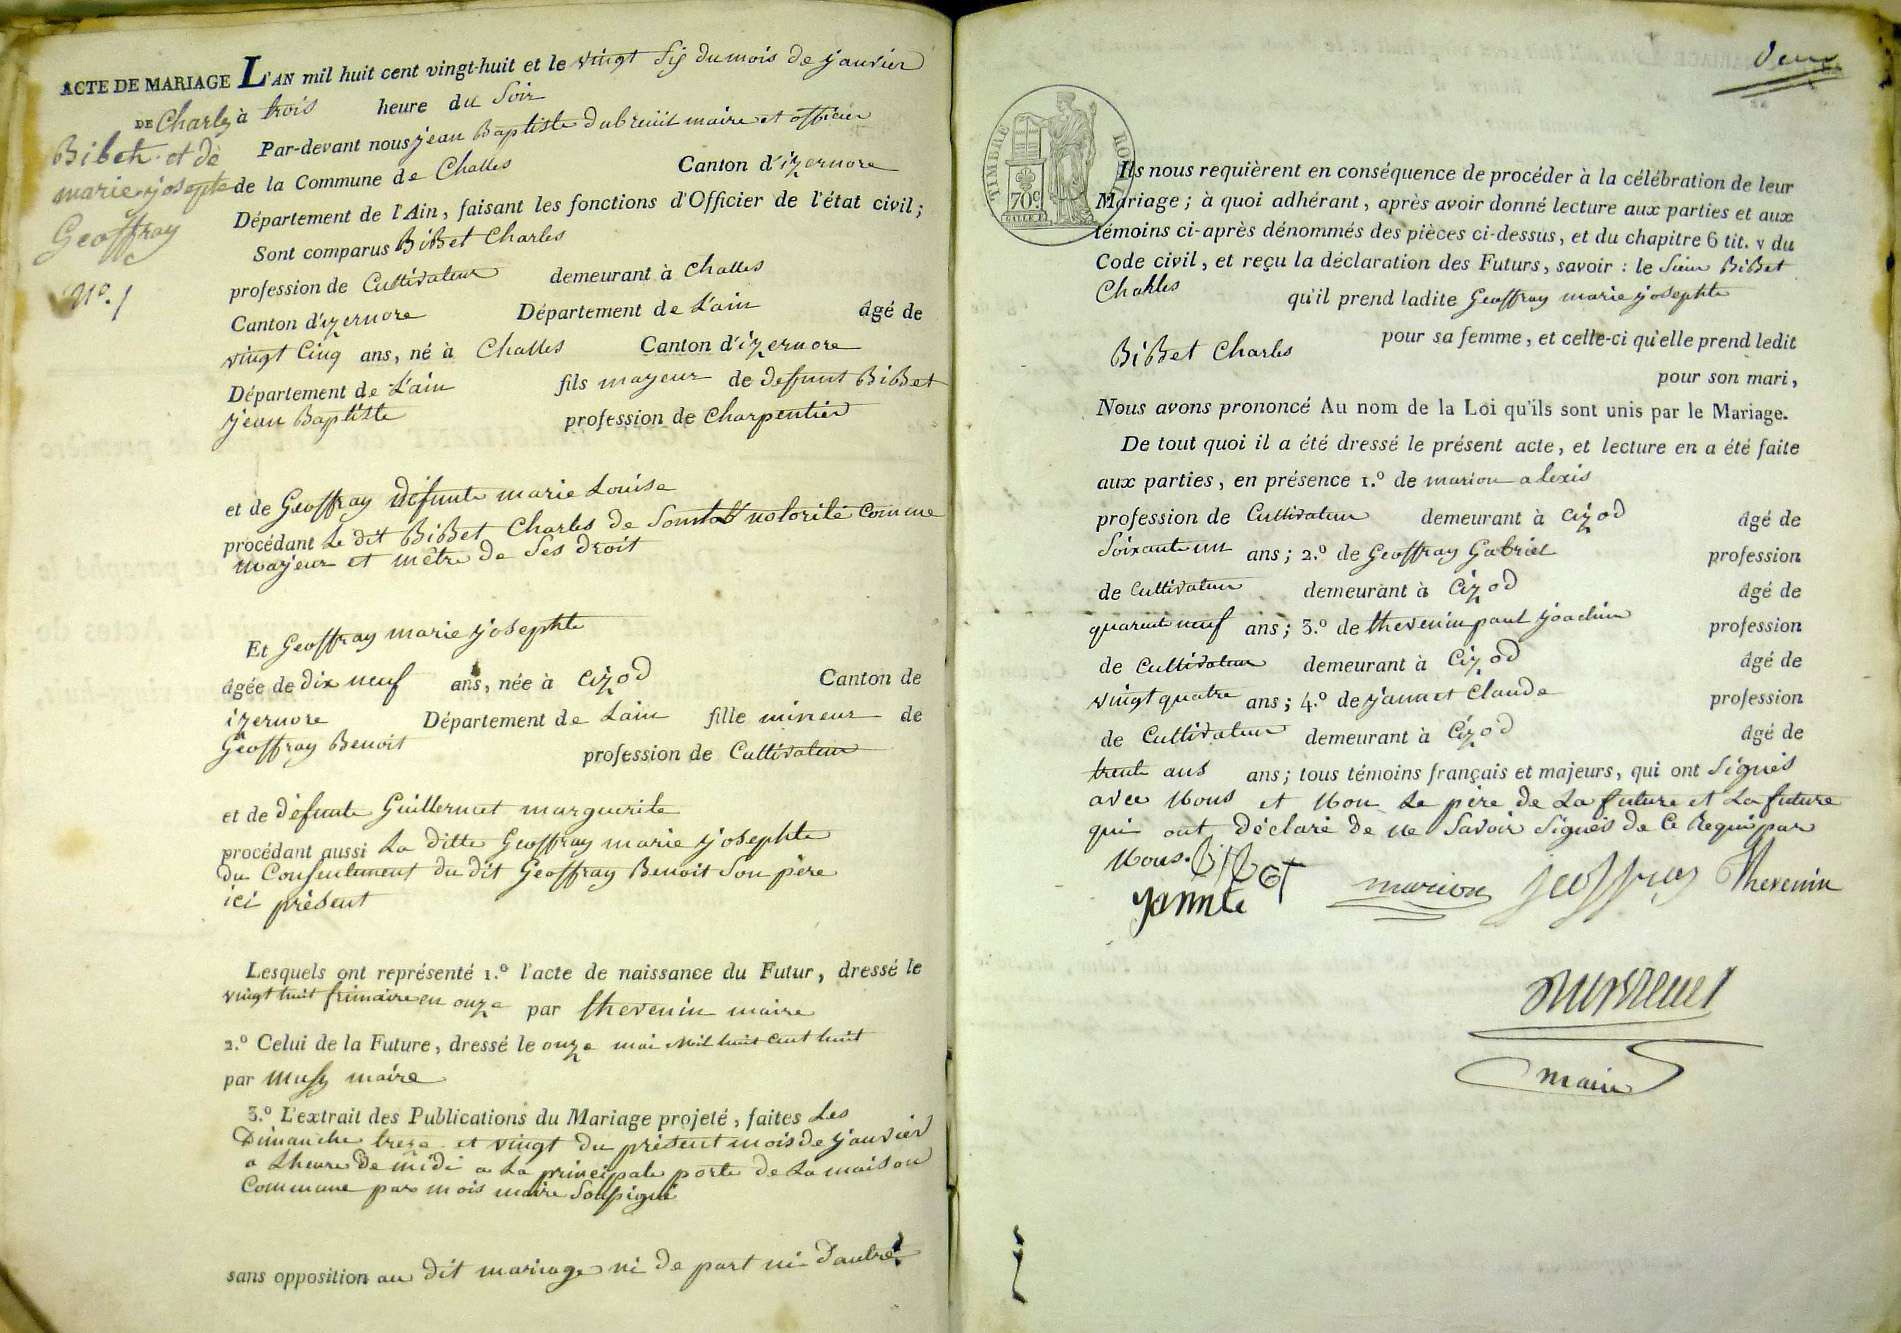 ACTE DE MARIAGE L'AN mil huit cent vingt-huit et le vingt six du mois de janvier
DE Charles à trois heure du Soir
Bibet et de Par-devant nous jean Baptiste dubreüil maire et officier
marie josepte de la Commune de Challes Canton d'izernore
Geoffray Département de l'Ain, faisant les fonctions d'Officier de l'état civil;
Sont comparus BiBet Charles
N°. 1 profession de Cultivateur demeurant à Challes
Canton d'izernore Département de L'ain âgé de
vingt Cinq ans, né à Challes Canton d'izernore
Département de L'ain fils mayeur de defunt BiBet
jean Baptiste profession de Charpentier
et de Geoffray défunte marie Louise
procédant Le dit BiBet Charles de notorité Comme
mayeur et mêtre de Ses droit
Et Geoffray marie josephte
âgée de dix neuf ans, née à Cizod Canton de
izernore Département de Lain fille mineur de
Geoffray Benoit profession de Cultivateur
et de défunte Guillermet marguerite
procédant aussi La ditte Geoffray marie josephte
du Consentement du dit Geoffray Benoit Son père
ici présent
Lesquels ont représenté 1.º l'acte de naissance du Futur, dressé le
vingt huit frimaire en onze par thevenin maire
2.º Celui de la Future, dressé le onze mai Mil huit Cent huit
par Musy maire
3.º L'extrait des Publications du Mariage projeté, faites Les
Dimanche treze et vingt du présent mois de janvier
a Lheure de midi a La principale porte de La maison
Commune par mois maire Soussigné
sans opposition au dit mariage ni de part ni d'autre.
deux
TIMBRE ROYAL
70c.
Ils nous requièrent en conséquence de procéder à la célébration de leur
Mariage; à quoi adhérant, après avoir donné lecture aux parties et aux
témoins ci-après dénommés des pièces ci-dessus, et du chapitre 6 tit. v du
Code civil, et reçu la déclaration des Futurs, savoir : le Sieur BiBet
Charles qu'il prend ladite Geoffray marie josephte
pour sa femme, et celle-ci qu'elle prend ledit
BiBet Charles
pour son mari,
Nous avons prononcé Au nom de la Loi qu'ils sont unis par le Mariage.
De tout quoi il a été dressé le présent acte, et lecture en a été faite
aux parties, en présence 1.º de marion alexis
profession de Cultivateur demeurant à Cizod âgé de
Soixante un ans; 2.º de Geoffray Gabriel profession
de Cultivateur demeurant à Cizod âgé de
quarante neuf ans; 3.º de thevenin paul joachim profession
de Cultivateur demeurant à Cizod âgé de
vingt quatre ans; 4.º de jannet Claude profession
de Cultivateur demeurant à Cizod âgé de
trente ans ans; tous témoins français et majeurs, qui ont Signés
avec Nous et Non Le père de La future et La future
qui ont déclaré de ne Savoir Signés de Ce Requi par
Nous. BiBet
Jannte marion Geoffray Thevenin
Dubreuil
maire